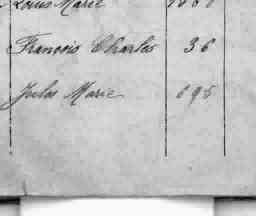 Louis Marie
François Charles 36
Jules Marie 695